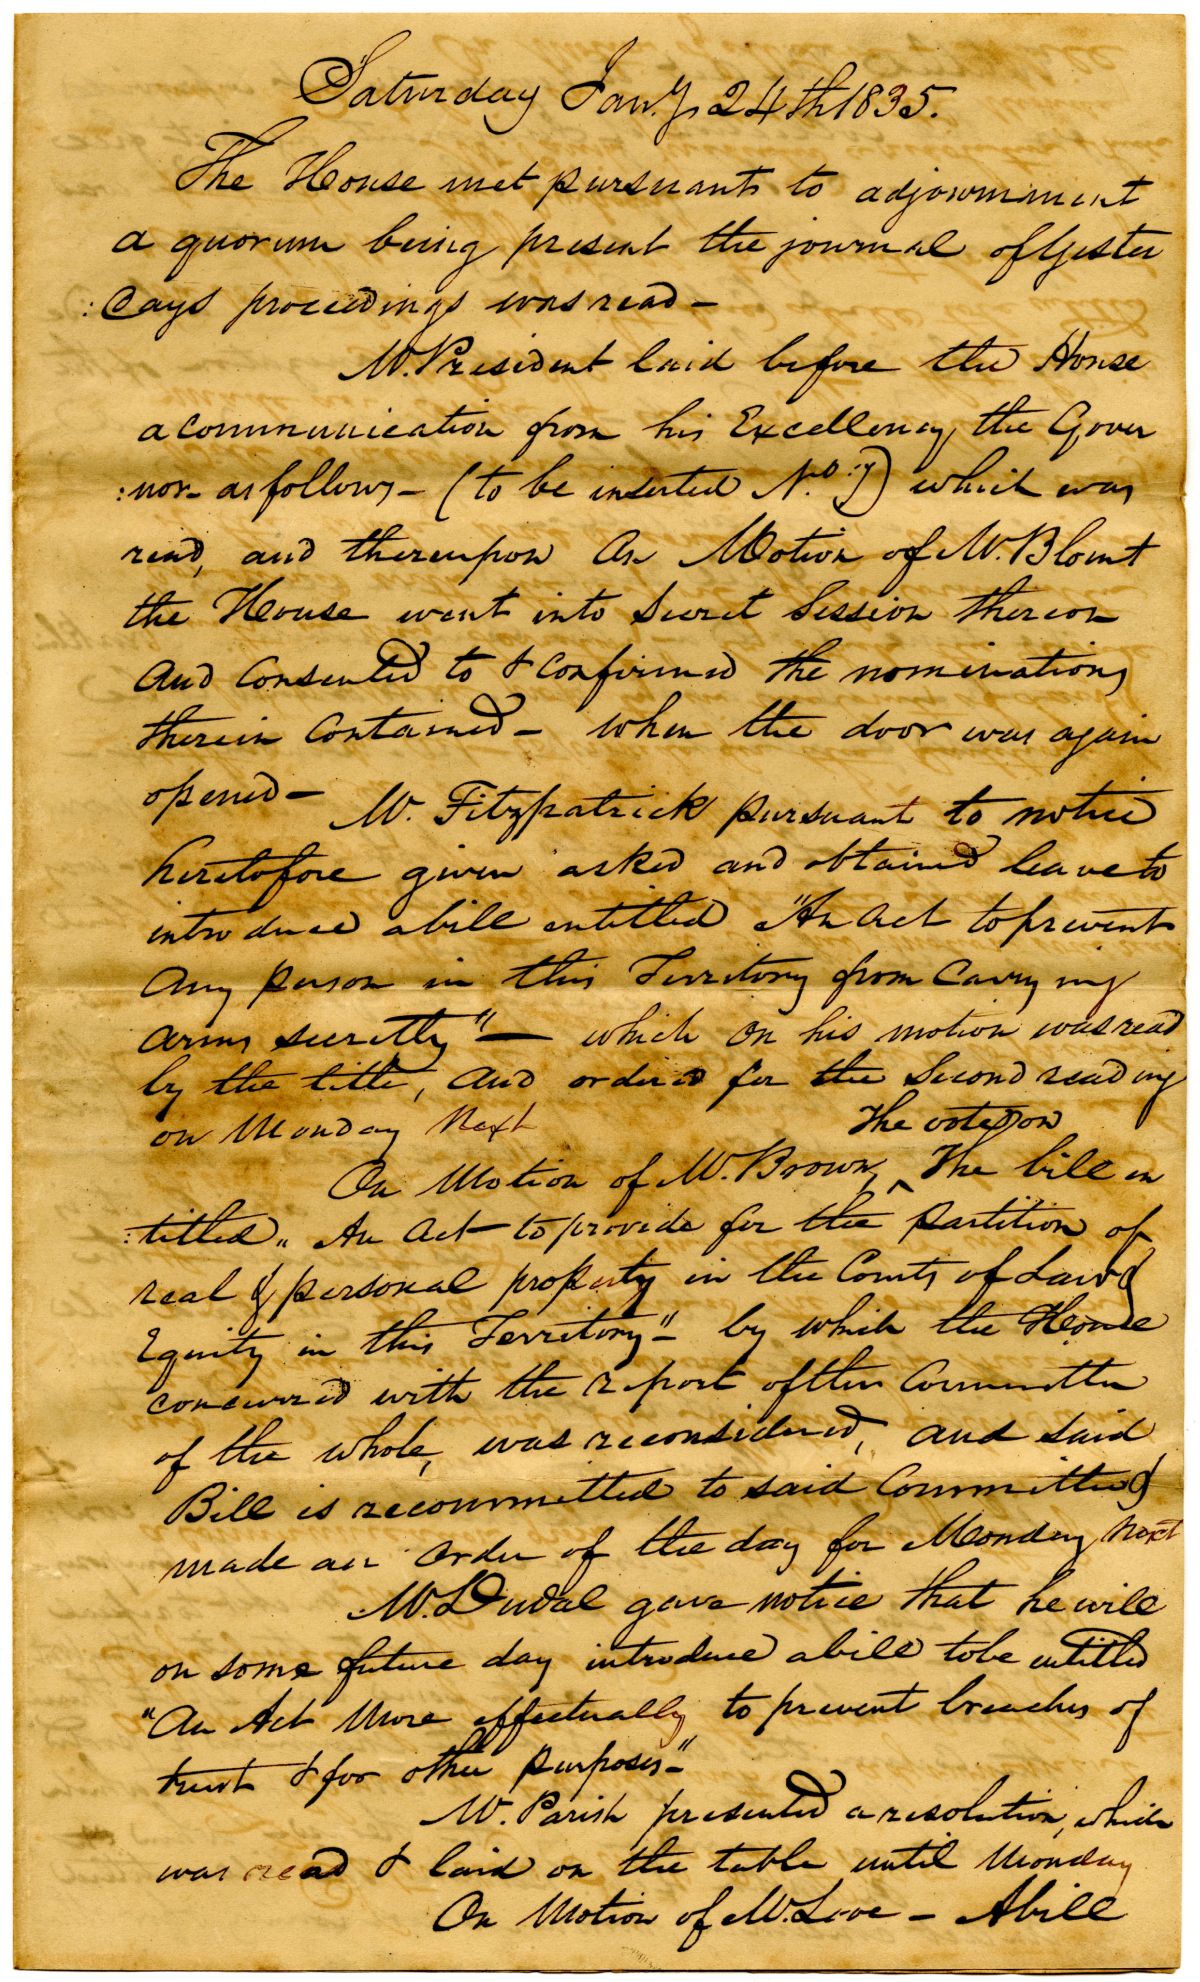 Saturday Jany. 24th 1835.
The House met pursuant to adjournment
a quorum being present the journal of Yester
:days proceedings was read –
Mr. President laid before the House
a communication from his Excellency the Gover
:nor – as follows – (to be inserted No. 7) which was
read, and thereupon On Motion of Mr. Blount
the House went into Secret Session thereon
and consented to & confirmed the nominations
therein contained – when the door was again
opened –
Mr. Fitzpatrick pursuant to notice
heretofore given asked and obtained leave to
introduce a bill entitled "An act to prevent
any person in this Territory from Carrying
arms secretly" – which on his motion was read
by the title, and ordered for the Second reading
on Monday Next
The vote on
On Motion of Mr. Brown, ^ The bill en
:titled „ An Act to provide for the partition of
real & personal property in the Courts of Law &
Equity in this Territory" – by which the House
concurred with the report of the Committee
of the whole, was reconsidered, and said
Bill is recommitted to said Committee &
made an order of the day for Monday Next
Mr. Duval gave notice that he will
on some future day introduce a bill to be entitled
"An Act More effectually to prevent breaches of
trust & for other purposes –"
Mr. Parish presented a resolution, which
was read & laid on the table until Monday
On Motion of Mr. Love – A bill